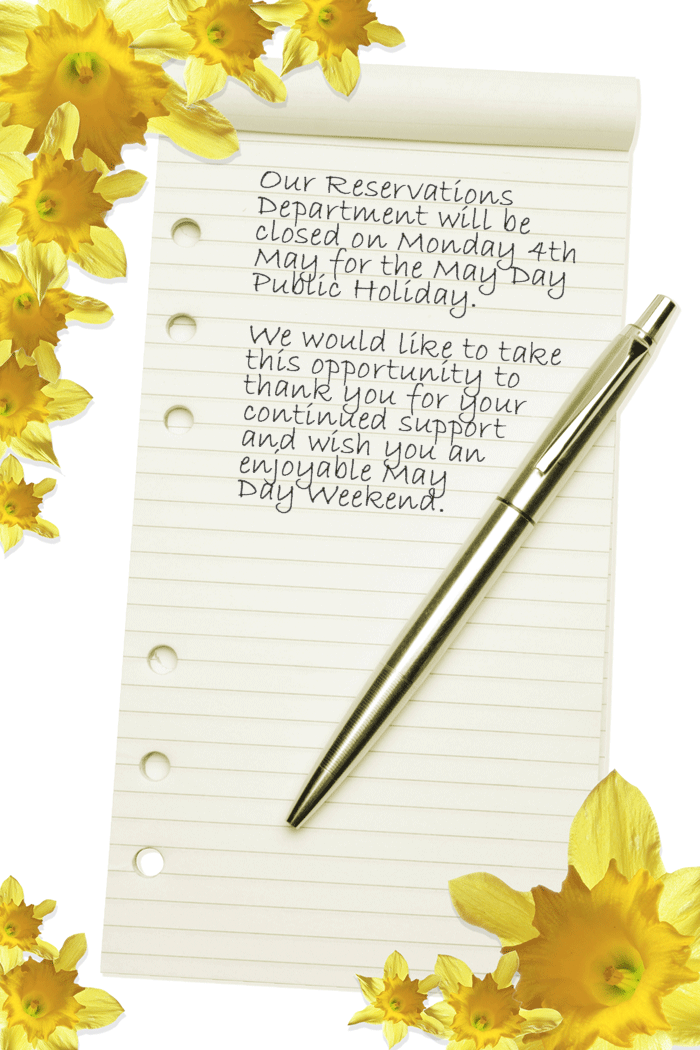 Our Reservations
Department will be
closed on Monday 4th
May for the May Day
Public Holiday.
We would like to take
this opportunity to
thank you for your
continued support
and wish you an
enjoyable May
Day Weekend.